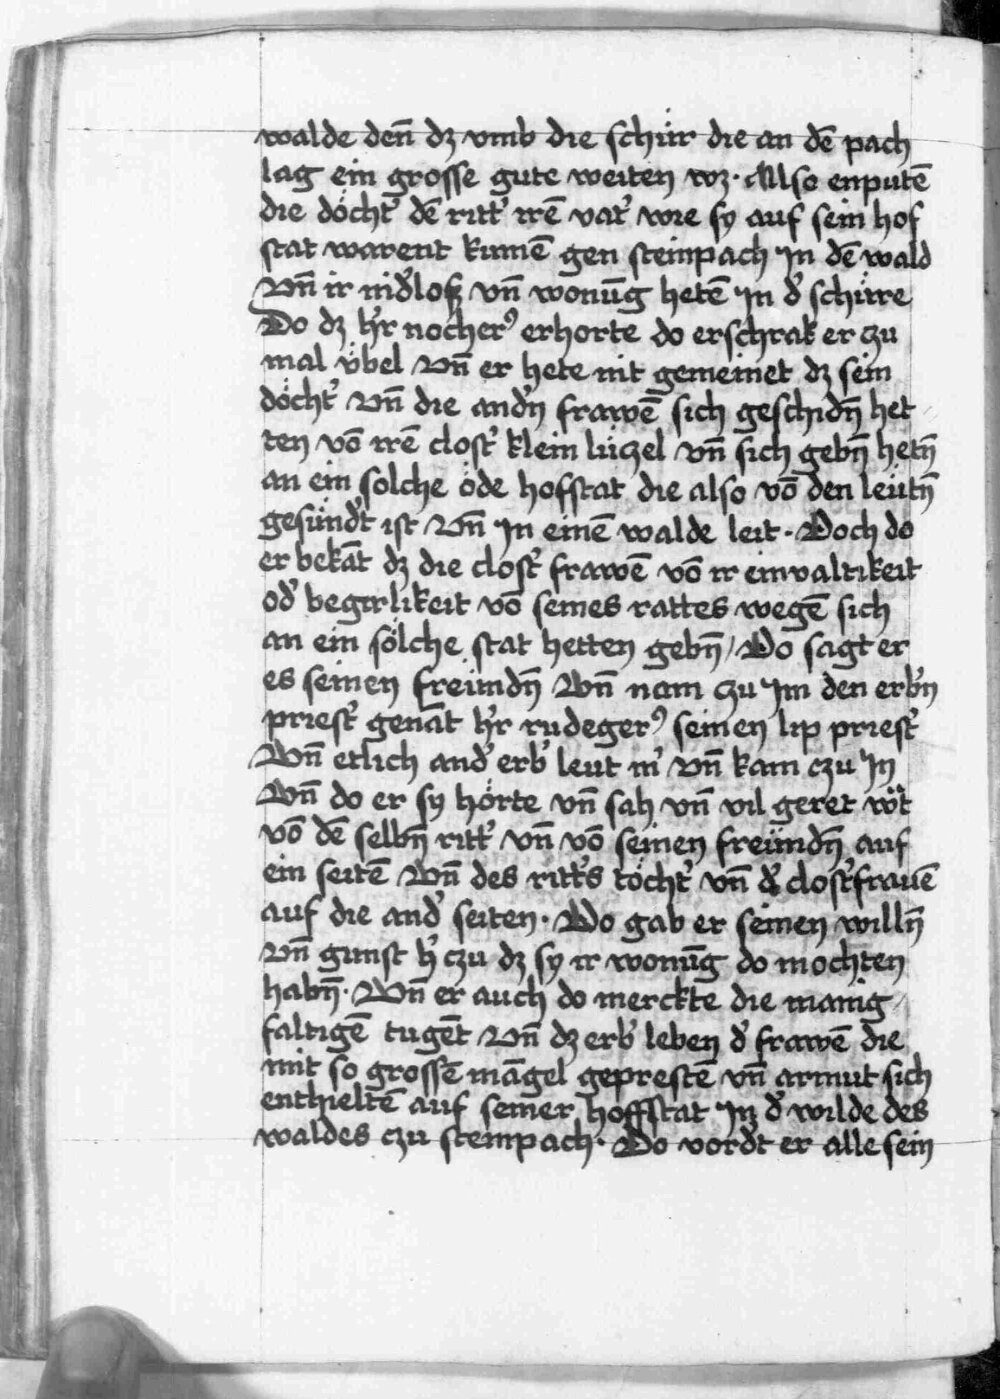 walde den̄ dz vmb die schür die an dē pach
lag ein grosse gute weiten wz · Also enputē
die döcht' dē ritt' irē vat' wie sy auf sein hof
stat warent kumē gen steinpach In dē wald
Vn̄ ir nid'losz vn̄ wonūg hetē In d' schüre
Do dz h'r nocher9 erhorte do erschrak er czu
mal vbel Vn̄ er hete nit gemeinet dz sein
döcht' Vn̄ die and'n frawē sich geschidn̄ het
ten vō irē clost' klein lüczel vn̄ sich gebn̄ hetn̄
an ein solche öde hofstat die also vō den leütn̄
gesünd't ist Vn̄ In einē walde leit · Doch do
er bekāt dz die clost' frawē vō ir einvaltikeit
od' begirlikeit vō seines rattes wegē sich
an ein sölche stat hetten gebn̄ / Do sagt er
es seinen freündn̄ Vn̄ nam czu Im den erb'n
priest' genāt h'r rudeger9 seinen lip priest'
Vn̄ etlich and' erb' leut m' vn̄ kam czu In
Vn̄ do er sy hörte vn̄ sah vn̄ vil geret w't
vō dē selbn̄ ritt' vn̄ vō seinen freündn̄ auf
ein seitē Vn̄ des ritt's töcht' vn̄ d' clost'frauē
auf die and' seiten · Do gab er seinen willn̄
vn̄ gunst h' czu dz sy ir wonūg do mochten
habn̄ · Vn̄ er auch do merckte die manig
faltigē tugēt Vn̄ dz erb' leben d' frawē die
mit so grossē māgel geprestē vn̄ armut sich
enthieltē auf seiner hoffstat In d' wilde des
waldes czu steinpach · Do vord't er alle sein